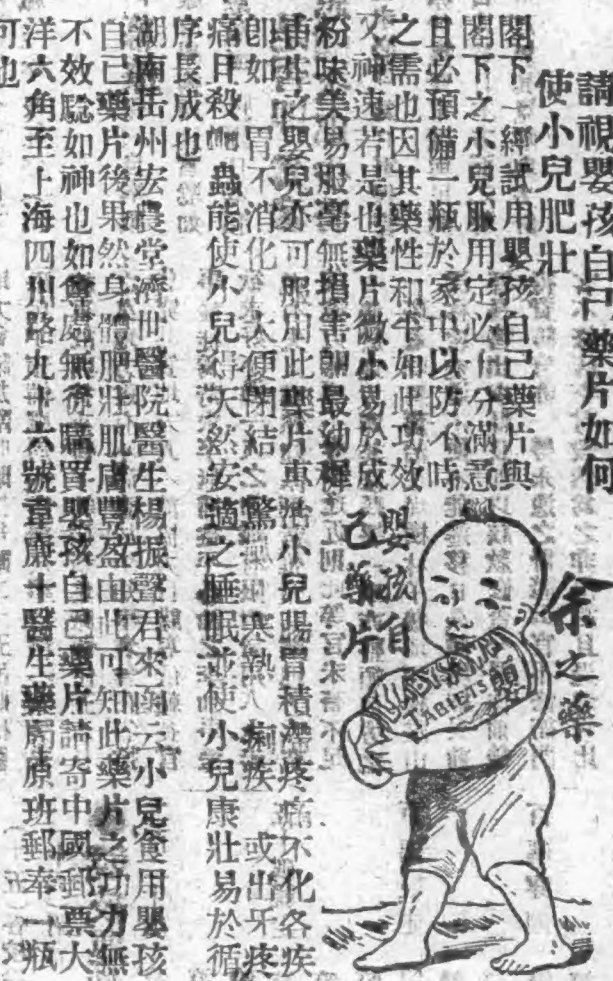 請視嬰孩自己藥片如何
使小兒肥壯
閣下一經試用嬰孩自己藥片與
閣下之小兒服用定必十分滿意
且必預備一瓶於家中以防不時
之需也因其藥性和平如此功效
又神速若是也藥片微小易於成
粉味美易服毫無損害即最幼穉
之嬰兒亦可服用此藥片專治小兒腸胃積滯疼痛不化各疾
即如 胃不消化 大便閉結 驚 寒熱 痢疾 或出牙疼
痛且殺 蟲能使小兒得天然安適之睡眠並使小兒康壯易於循
序長成也
湖南岳州宏農堂濟世醫院醫生楊振聲君來函云小兒食用嬰孩
自己藥片後果然身體肥壯肌膚豐盈由此可知此藥片之功力無
不效驗如神也如尊處無從購買嬰孩自己藥片請寄中國郵票大
洋六角至上海四川路九十六號韋廉士醫生藥局原班郵奉一瓶
可也
余之藥
嬰孩自
己藥片
BABY'S OWN
TABLETS